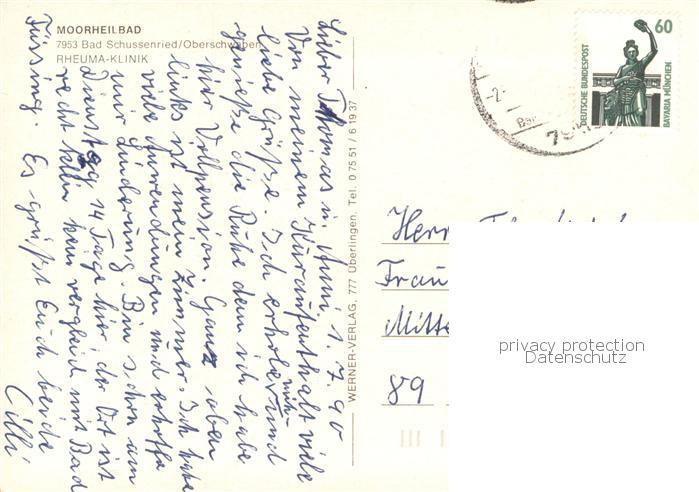 MOORHEILBAD
7953 Bad Schussenried/Oberschwaben
RHEUMA-KLINIK
Lieber Thomas u. Ann, 1.7.90
Von meinem Kuraufenthalt viele
liebe Grüße. Ich erhole mich und
genieße die Ruhe denn ich habe
hier Vollpension. Ganz oben
links ist mein Zimmer. Ich habe
viele Anwendungen und erhoffe
mir Linderung. Bin schon am
Dienstag 14 Tage hier der Ort ist
recht klein kein vergleich mit Bad
Füssing. Es grüßt Euch beide
Cilli
WERNER-VERLAG, 777 Überlingen, Tel. 0 75 51 / 6 19 37
60
DEUTSCHE BUNDESPOST
BAYARIA MÜNCHEN
Herr
Frau
Mitte
89
privacy protection
Datenschutz